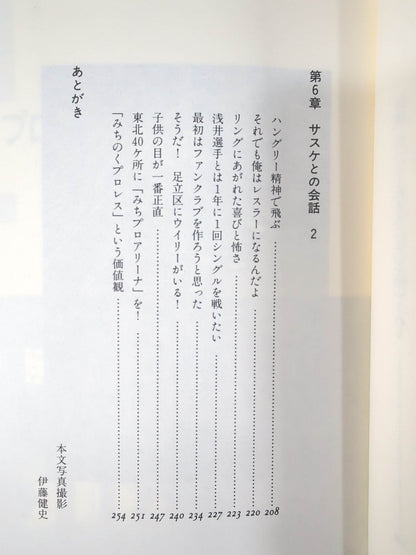 第6章 サスケとの会話 2
ハングリー精神で飛ぶ……208
それでも俺はレスラーになるんだよ……220
リングにあがれた喜びと怖さ……223
浅井選手とは1年に1回シングルを戦いたい……227
最初はファンクラブを作ろうと思った……234
そうだ! 足立区にウイリーがいる!……240
子供の目が一番正直……247
東北40ケ所に「みちプロアリーナ」を!……251
「みちのくプロレス」という価値観……254
あとがき
本文写真撮影
伊藤健史